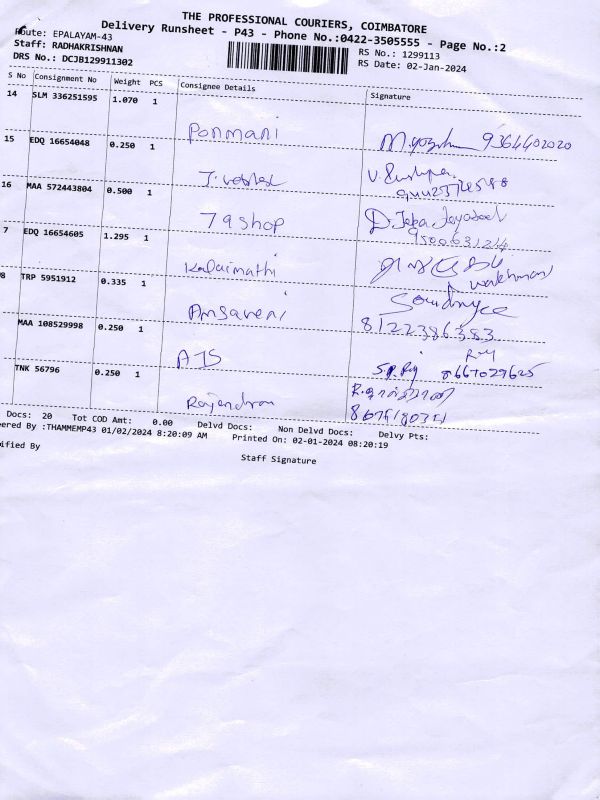 THE PROFESSIONAL COURIERS, COIMBATORE
Delivery Runsheet - P43 - Phone No.:0422-3505555 - Page No.:2
Route: EPALAYAM-43
RS No.: 1299113
Staff: RADHAKRISHNAN
RS Date: 02-Jan-2024
DRS No.: DCJB129911302
S No Consignment No Weight PCS Consignee Details Signature
14 SLM 336251595 1.070 1
Ponmani 9364402020
15 EDQ 16654048 0.250 1
16 MAA 572443804 0.500 1
7 9 shop D.Jeba Jayaseel
7 EDQ 16654605 1.295 1
Kalaimathi
watchman
8 TRP 5951912 0.335 1
Amsaveni
8122386383
MAA 108529998 0.250 1
AJS
8667029625
TNK 56796 0.250 1
Rajendran
Docs: 20 Tot COD Amt: 0.00 Delvd Docs: Non Delvd Docs: Delvy Pts:
ered By :THAMMEMP43 01/02/2024 8:20:09 AM Printed On: 02-01-2024 08:20:19
ified By
Staff Signature